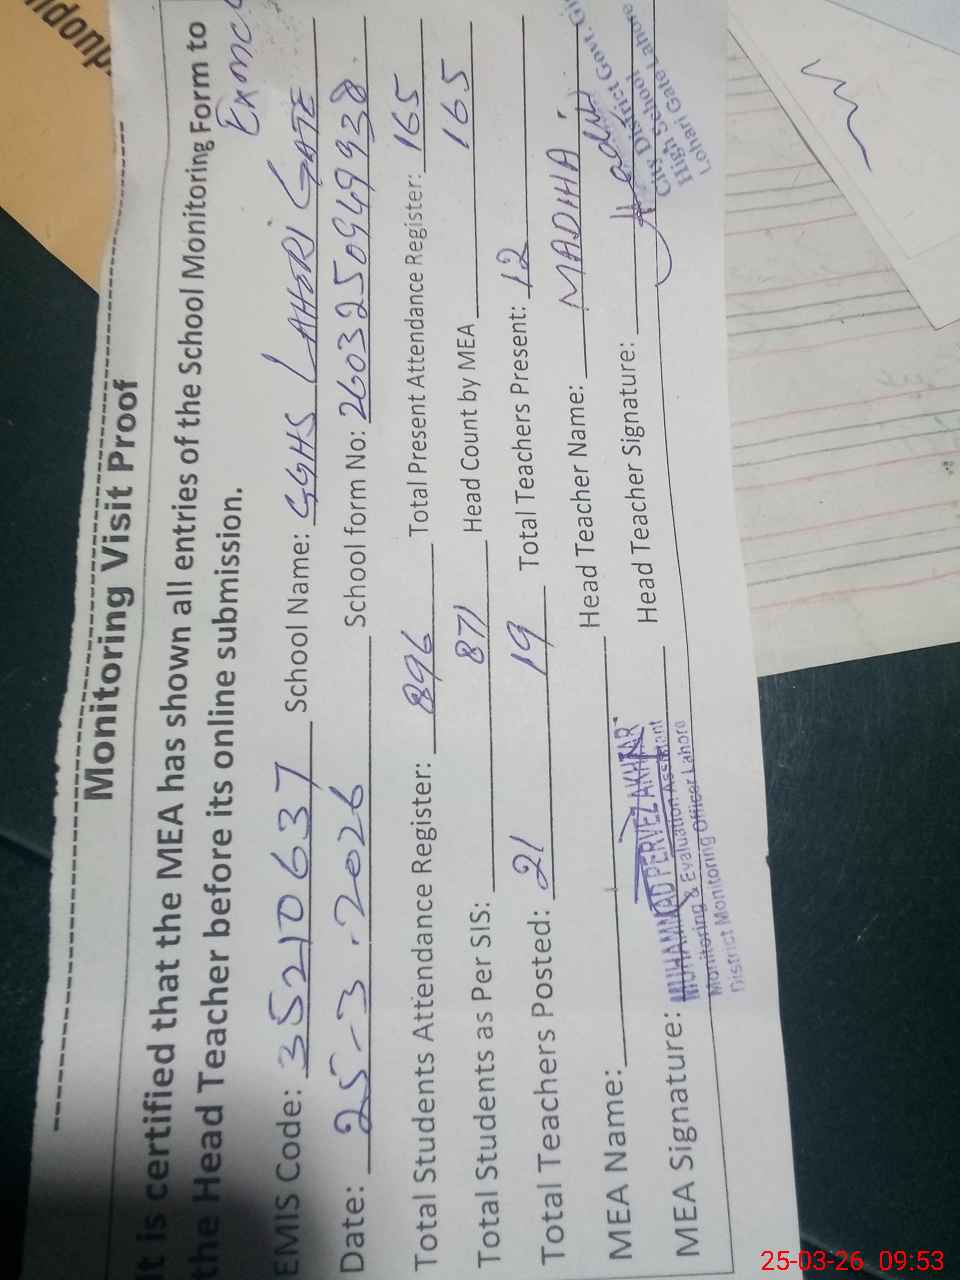 Monitoring Visit Proof
It is certified that the MEA has shown all entries of the School Monitoring Form to
the Head Teacher before its online submission.
EMIS Code: 35210637 School Name: GGHS LAHORI GATE
Date: 25-3-2026 School form No: 26032509499938
Total Students Attendance Register: 896 Total Present Attendance Register: 165
Total Students as Per SIS: 871 Head Count by MEA 165
Total Teachers Posted: 21 19 Total Teachers Present: 12
MEA Name: Head Teacher Name: MADIHA
MEA Signature: Head Teacher Signature:
MUHAMMAD PERVEZ AKHTAR
Monitoring & Evaluation Assistant
District Monitoring Officer Lahore
City District Govt.
High School
Lohari Gate Lahore
25-03-26 09:53